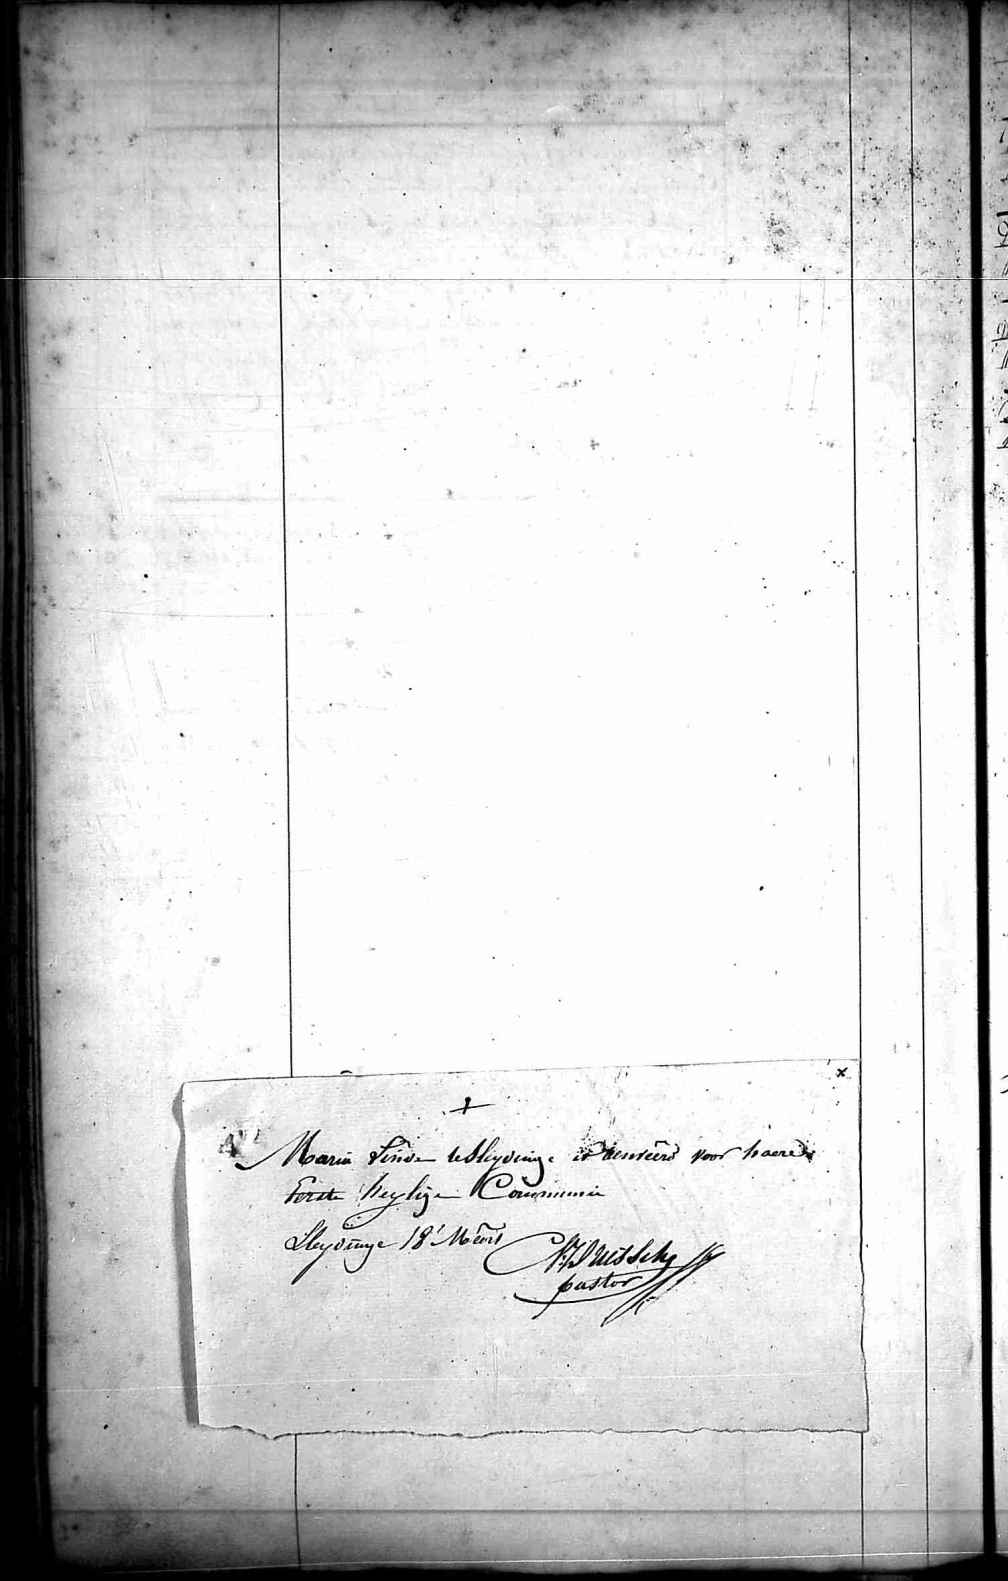 +
Maria te Sleydinge is aenveird voor haere
Eerste heylige Communie
Sleydinge 18 Meert
pastor